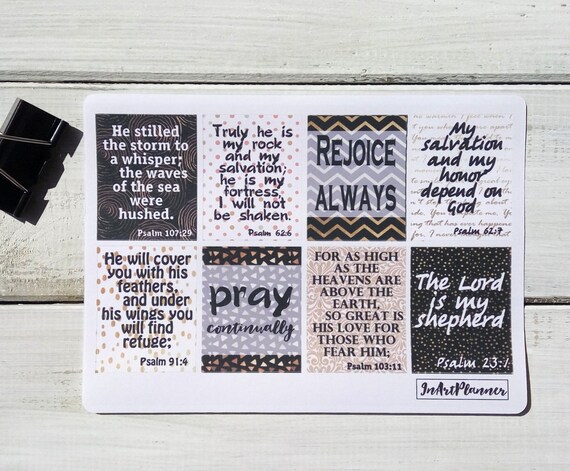 He stilled
the storm to
a whisper;
the waves
of the sea
were
hushed.
Psalm 107:29
Truly he is
my rock
and my
salvation;
he is my
fortress,
I will not
be shaken.
Psalm 62:6
REJOICE
ALWAYS
My
salvation
and my
honor
depend on
God
Psalm 62:7
He will cover
you with his
feathers,
and under
his wings you
will find
refuge;
Psalm 91:4
pray
continually
FOR AS HIGH
AS THE
HEAVENS ARE
ABOVE THE
EARTH,
SO GREAT IS
HIS LOVE FOR
THOSE WHO
FEAR HIM;
Psalm 103:11
The Lord
is my
shepherd
Psalm 23:1
InArtPlanner